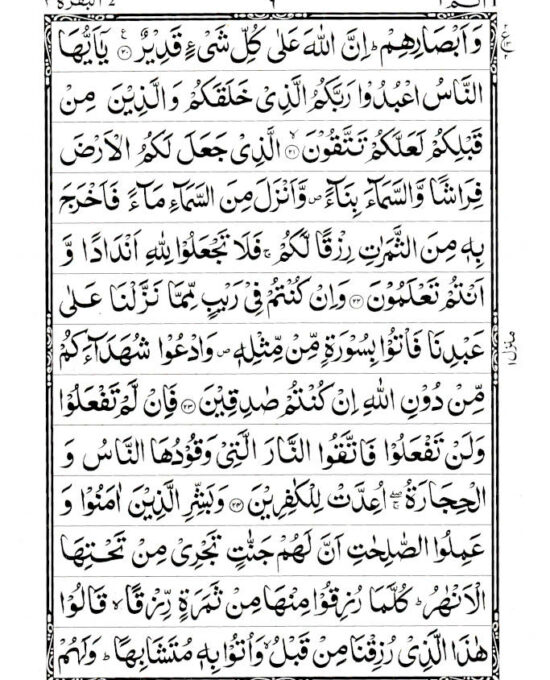 وَاَبْصَارِهِمْ ؕ اِنَّ اللّٰهَ عَلٰى كُلِّ شَىْءٍ قَدِيْرٌ ۝۲۰ يٰۤاَيُّهَا
النَّاسُ اعْبُدُوْا رَبَّكُمُ الَّذِىْ خَلَقَكُمْ وَالَّذِيْنَ مِنْ
قَبْلِكُمْ لَعَلَّكُمْ تَتَّقُوْنَ ۝۲۱ الَّذِىْ جَعَلَ لَكُمُ الْاَرْضَ
فِرَاشًا وَّالسَّمَآءَ بِنَآءً ص وَّاَنْزَلَ مِنَ السَّمَآءِ مَآءً فَاَخْرَجَ
بِهٖ مِنَ الثَّمَرٰتِ رِزْقًا لَّكُمْ ۚ فَلَا تَجْعَلُوْا لِلّٰهِ اَنْدَادًا وَّ
اَنْتُمْ تَعْلَمُوْنَ ۝۲۲ وَاِنْ كُنْتُمْ فِىْ رَيْبٍ مِّمَّا نَزَّلْنَا عَلٰى
عَبْدِنَا فَاْتُوْا بِسُوْرَةٍ مِّنْ مِّثْلِهٖ ص وَادْعُوْا شُهَدَآءَكُمْ
مِّنْ دُوْنِ اللّٰهِ اِنْ كُنْتُمْ صٰدِقِيْنَ ۝۲۳ فَاِنْ لَّمْ تَفْعَلُوْا
وَلَنْ تَفْعَلُوْا فَاتَّقُوا النَّارَ الَّتِىْ وَقُوْدُهَا النَّاسُ وَ
الْحِجَارَةُ ۖۚ اُعِدَّتْ لِلْكٰفِرِيْنَ ۝۲۴ وَبَشِّرِ الَّذِيْنَ اٰمَنُوْا وَ
عَمِلُوا الصّٰلِحٰتِ اَنَّ لَهُمْ جَنّٰتٍ تَجْرِىْ مِنْ تَحْتِهَا
الْاَنْهٰرُ ؕ كُلَّمَا رُزِقُوْا مِنْهَا مِنْ ثَمَرَةٍ رِّزْقًا ۙ قَالُوْا
هٰذَا الَّذِىْ رُزِقْنَا مِنْ قَبْلُ ۙ وَاُتُوْا بِهٖ مُتَشَابِهًا ؕ وَلَهُمْ
منزل ۱